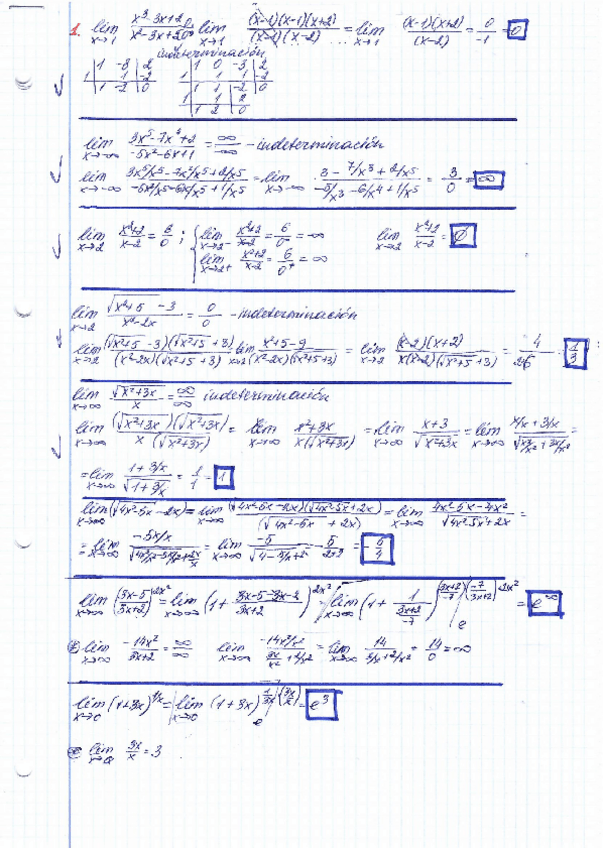 1. lím x→1 x³-3x+2/x²-3x+2 = 0/0 lím x→1 (x-1)(x-1)(x+2)/(x-1)(x-2) = lím x→1 (x-1)(x+2)/(x-2) = 0/-1 = 0
indeterminación
1 -3 2 1 0 -3 2
1 1 -2 1 1 1 -2
1 -2 0 1 1 -2 0
1 1 2
1 2 0
lím 3x⁵-7x²+2/-5x²-6x+1 = ∞/∞ - indeterminación
lím 3x⁵/x⁵-7x²/x⁵+2/x⁵ / -5x²/x⁵-6x/x⁵+1/x⁵ = lím 3-7/x³+2/x⁵ / -5/x³-6/x⁴+1/x⁵ = 3/0 = ∞
lím x→2 x²+2/x-2 = 6/0 ; lím x→2⁻ x²+2/x-2 = 6/0⁻ = -∞ lím x→2 x²+2/x-2 = ∅
lím x→2⁺ x²+2/x-2 = 6/0⁺ = ∞
lím x→2 √x²+5 -3/x²-2x = 0/0 - indeterminación
lím x→2 (√x²+5 -3)(√x²+5 +3)/(x²-2x)(√x²+5 +3) lím x→2 x²+5-9/(x²-2x)(√x²+5+3) = lím x→2 (x-2)(x+2)/x(x-2)(√x²+5+3) = 4/ = 1/3
lím x→∞ √x²+3x/x = ∞/∞ indeterminación
lím x→∞ (√x²+3x)(√x²+3x)/x(√x²+3x) = lím x→∞ x²+3x/x(√x²+3x) = lím x→∞ x+3/√x²+3x = lím x→∞ x/x+3/x / √x²/x²+3x/x² =
= lím x→∞ 1+3/x / √1+3/x = 1/1 = 1
lím x→∞ (√4x²-5x -2x) = lím x→∞ (√4x²-5x -2x)(√4x²-5x +2x)/(√4x²-5x +2x) = lím x→∞ 4x²-5x-4x²/√4x²-5x+2x =
= lím x→∞ -5x/x / √4x²/x²-5x/x²+2x/x = lím x→∞ -5/√4-5/x+2 = -5/2+2 =
lím x→∞ (3x-5/3x+2)^2x² = lím x→∞ (1+ 3x-5-3x-2/3x+2)^2x² = lím x→∞ (1+ 1/(3x+2/-7))^(3x+2/-7)(-7/3x+2)·2x² = e
lím x→∞ -14x²/3x+2 = ∞/∞ lím x→∞ -14x²/x² / 3x/x²+2/x² = lím x→∞ 14/3/x+2/x² = 14/0 = ∞
lím x→0 (1+3x)^1/x = lím x→0 (1+3x)^(1/3x)(3x/x) = e³
lím 3x/x = 3